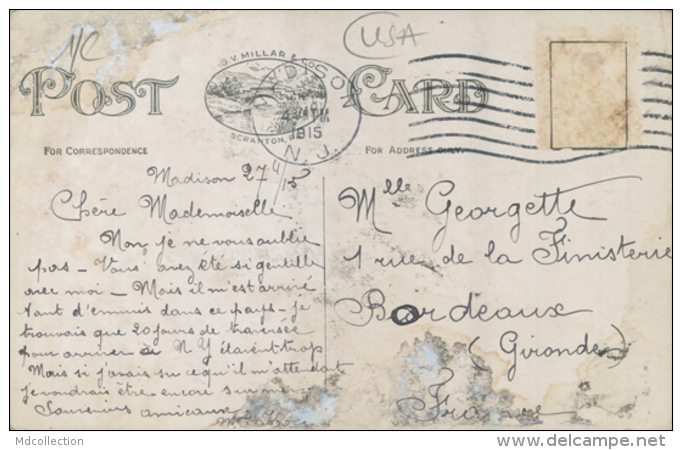 NC
USA
POST CARD
G.V. MILLAR & CO.
SCRANTON,
1915
N. J.
FOR CORRESPONDENCE
FOR ADDRESS ONLY.
Madison 27/4/15
Chère Mademoiselle
Non, je ne vous oublie
pas – Vous avez été si gentille
avec moi – Mais il m'est arrivé
tant d'ennuis dans ce pays – je
trouvais que 20 jours de traversée
pour arriver à N Y étaient trop
Mais si j'avais su ce qu'il m'attendait
je voudrais être encore sur
Souvenirs amicaux
Mlle Georgette
1 rue de la Finisterie
Bordeaux
(Gironde)
France
Mdcollection
www.delcampe.net